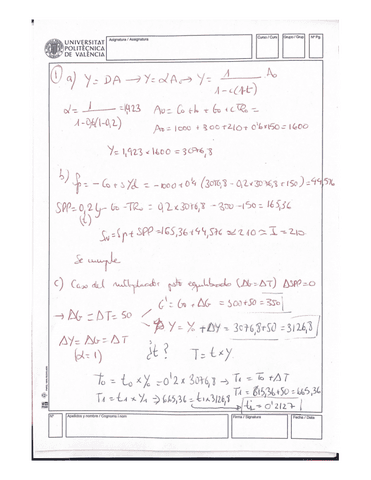 UNIVERSITAT
POLITÈCNICA
DE VALÈNCIA
Asignatura / Assignatura
Curso / Curs
Grupo / Grup
Nº Pg.
① a) Y = DA → Y = αA₀ → Y = 1 / 1-c(1-t) A₀
α = 1 / 1-0,6(1-0,2) = 1,923
A₀ = C₀ + I₀ + G₀ + cTR₀ =
A₀ = 1000 + 300 + 210 + 0'6·150 = 1600
Y = 1,923 × 1600 = 3076,8
b) Sp = -C₀ + sYd = -1000 + 0'4 (3076,8 - 0,2×3076,8 + 150) = 44,576
SPP = 0,2Y - G₀ - TR₀ = 0,2×3076,8 - 300 - 150 = 165,36
(t)
SN = Sp + SPP = 165,36 + 44,576 ≃ 210 = I = 210
Se cumple
c) Caso del multiplicador pto equilibrado (ΔG = ΔT) ΔSPP = 0
→ ΔG = ΔT = 50
G' = G₀ + ΔG = 300 + 50 = 350
ΔY = ΔG = ΔT
Y₁ = Y₀ + ΔY = 3076,8 + 50 = 3126,8
(α = 1)
¿t?
T = t × Y
T₀ = t₀ × Y₀ = 0'2 × 3076,8 → T₁ = T₀ + ΔT
T₁ = 615,36 + 50 = 665,36
T₁ = t₁ × Y₁ → 665,36 = t₁ × 3126,8
t₁ = 0'2127
Nº
Apellidos y nombre / Cognoms i nom
Firma / Signatura
Fecha / Data